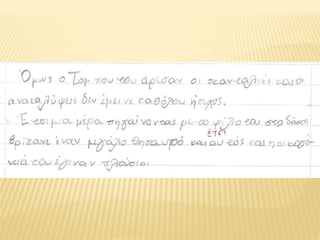 Όμως ο Τομ που του άρεσαν οι σκανταλιές και οι
ανακαλύψεις δεν έμεινε καθόλου ήσυχος.
Έτσι μια μέρα πηγαίνοντας με το φίλο του στο δάσος
έτσι
βρήκανε έναν μεγάλο θησαυρό και αυτός και η οικογέ-
νειά του έγιναν πλούσιοι